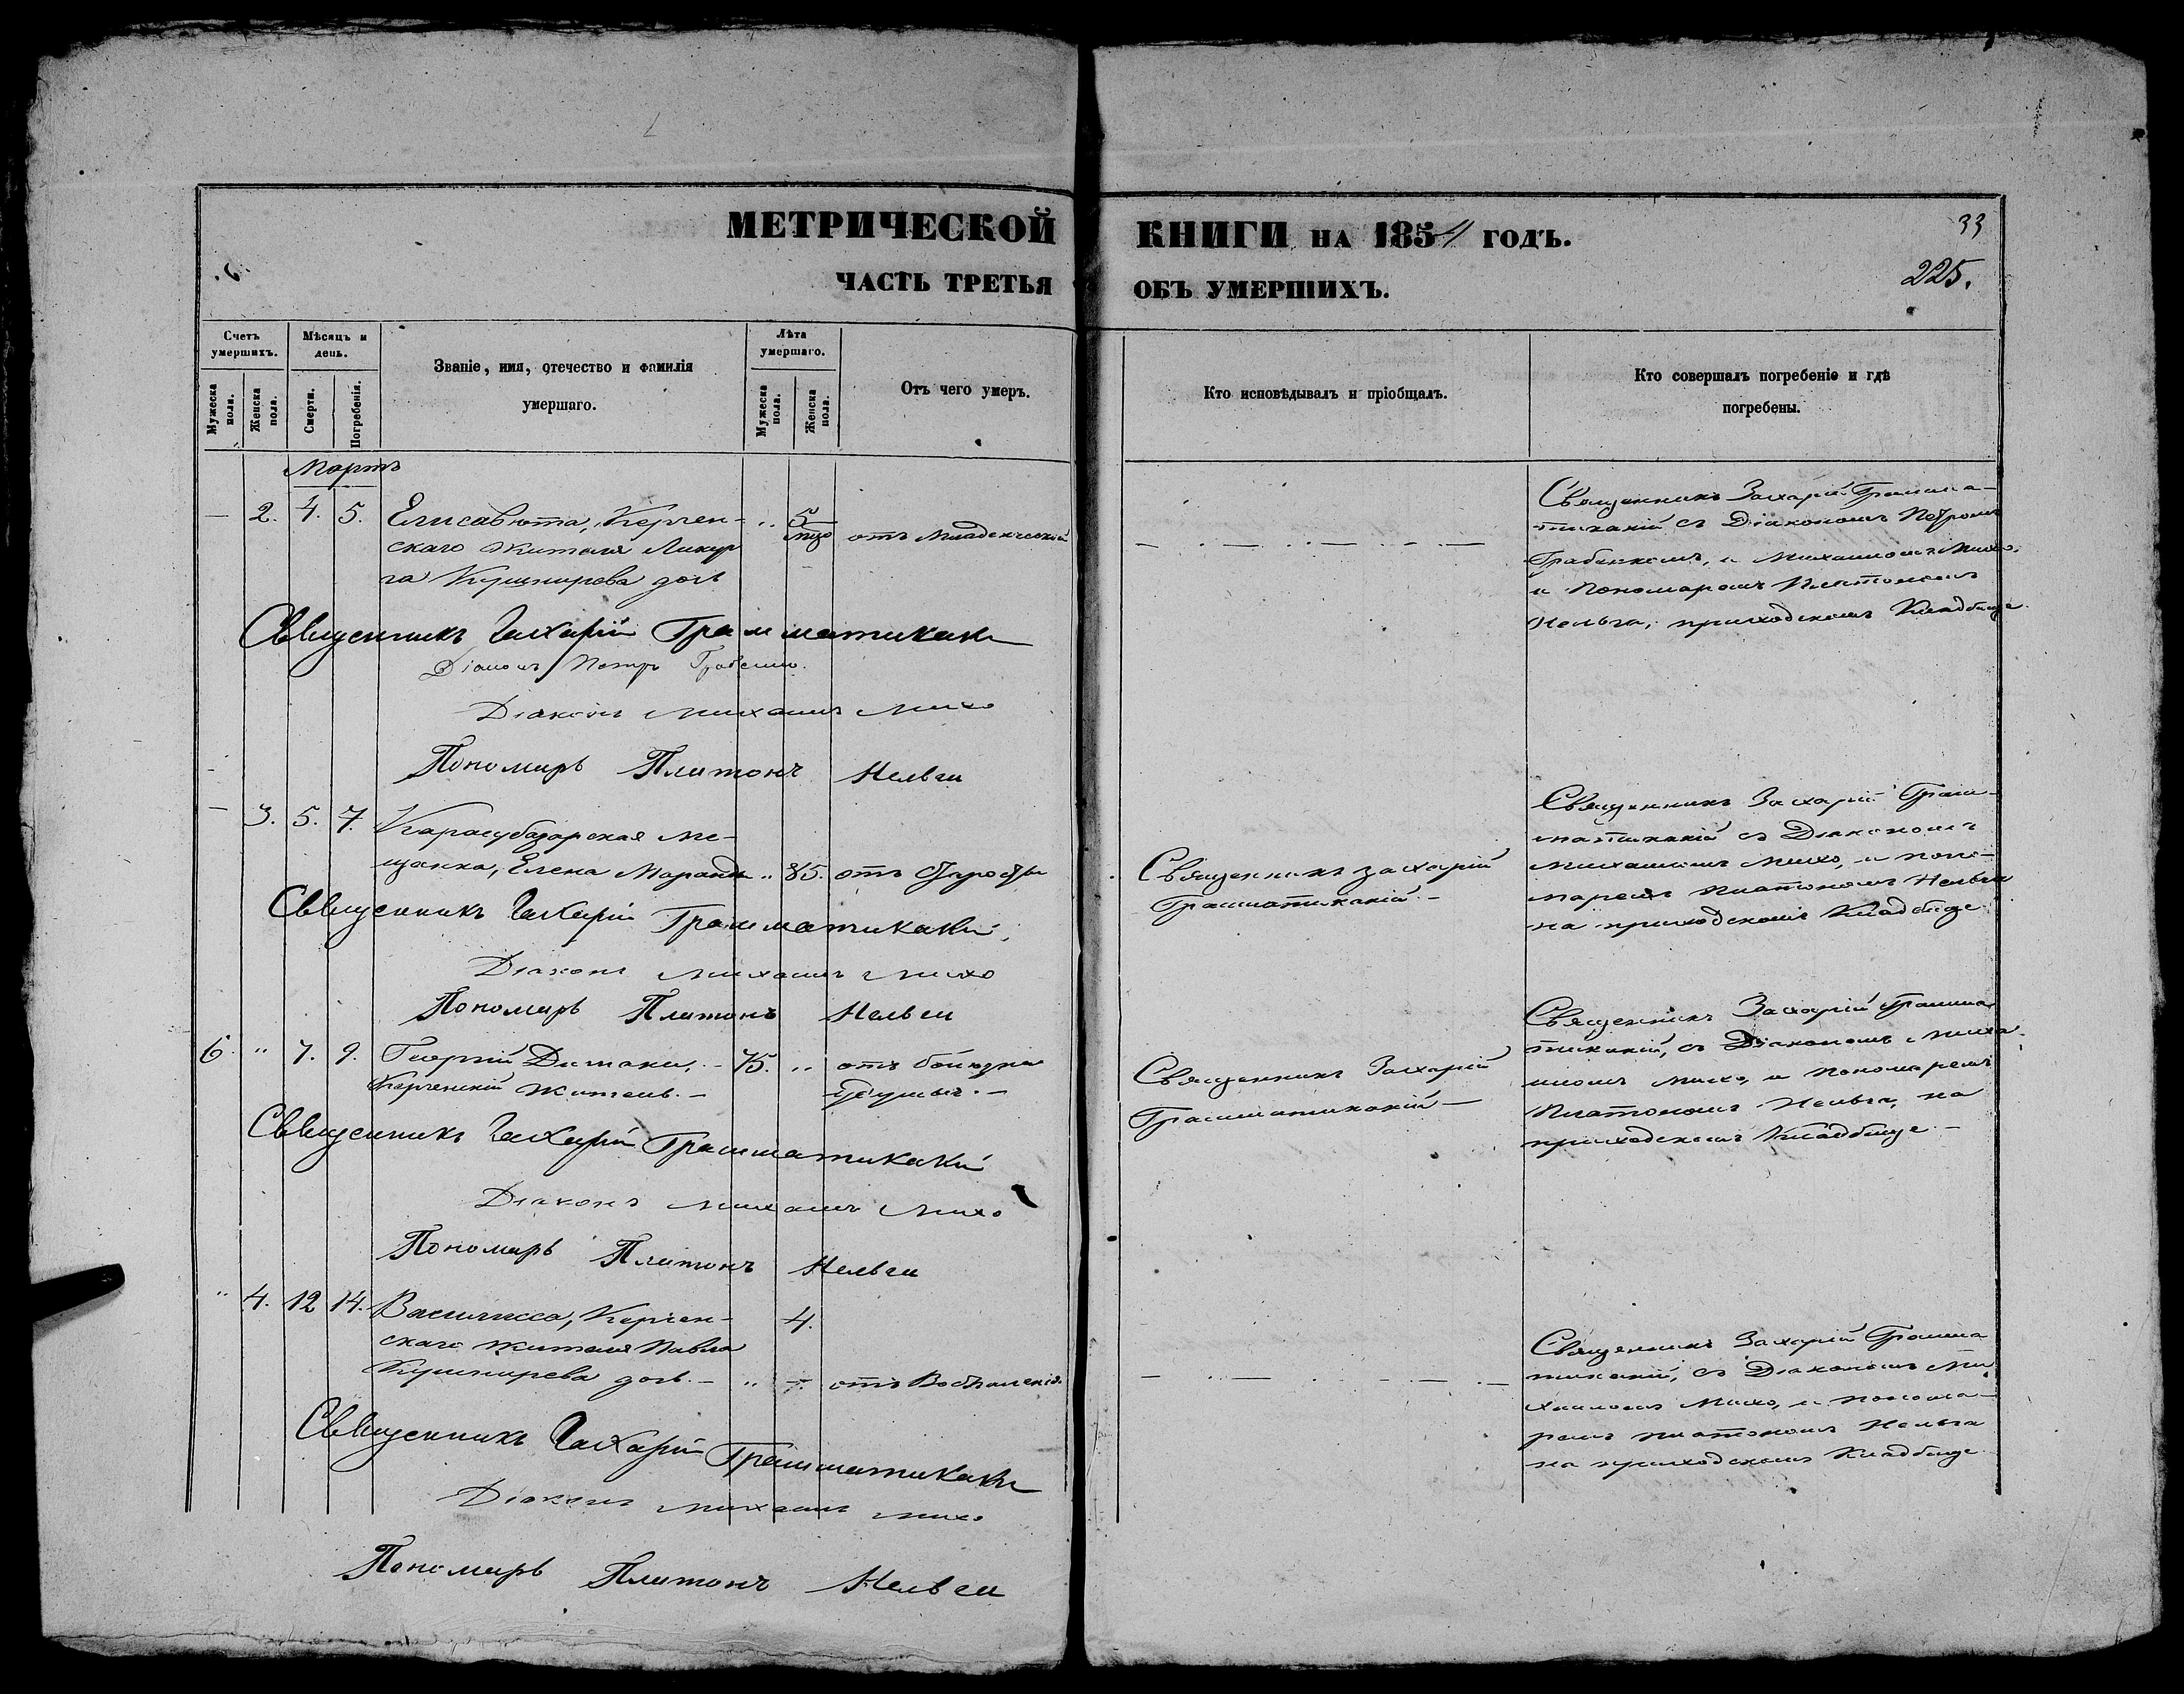 МЕТРИЧЕСКОЙ КНИГИ НА 1854 ГОДЪ.
33
ЧАСТЬ ТРЕТЬЯ ОБЪ УМЕРШИХЪ.
225.
Счетъ умершихъ.
Мѣсяцъ и день.
Званіе, имя, отечество и фамилія
умершаго.
Лѣта умершаго.
Отъ чего умеръ.
Мужеска пола.
Женска пола.
Смерти.
Погребенія.
Мужеска пола.
Женска пола.
Кто исповѣдывалъ и пріобщалъ.
Кто совершалъ погребеніе и гдѣ
погребены.
Мартъ
— 2. 4. 5. Елисавета, Керчен-
скаго жителя Ликур
га Кушнирева дочь
" 5 отъ младенческой
Священникъ Захарій Грамма-
тикакій съ Діакономъ Петромъ
Грабенкомъ, и Михаиломъ Михо,
и Пономаромъ Платономъ
Нельга, приходскомъ Кладбище.
Священникъ Захарій Грамматикаки
Діаконъ Петръ Грабенко.
Діаконъ Михаилъ Михо
Пономарь Платонъ Нельги
— 3. 5. 7. Карасубазарская Ме-
щанка, Елена Маранди " 85. отъ старости
Священникъ Захарій
Грамматикакій. —
Священникъ Захарій Грам-
матикакій съ Діакономъ
Михаиломъ Михо, и поно-
маремъ Платономъ Нельга
на приходскомъ Кладбище
Священникъ Захарій Грамматикаки
Діаконъ Михаилъ Михо
Пономарь Платонъ Нельги
6. " 7. 9. Георгій — 75. " отъ
Керченскій Житель. —
Священникъ Захарій
Грамматикакій —
Священникъ Захарій Грамма
тикакій, съ Діакономъ Миха-
иломъ Михо, и Пономаремъ
Платономъ Нельга, на
приходскомъ Кладбище —
Священникъ Захарій Грамматикаки
Діаконъ Михаилъ Михо
Пономарь Платонъ Нельги
" 4. 12 14. Василисса, Керчен-
скаго жителя Павла
Кушнирева дочь. —
4. отъ Воспаленія
Священникъ Захарій Грамма
тикакій, съ Діакономъ Ми
хаиломъ Михо, и понома-
ремъ Платономъ Нельга
на приходскомъ Кладбище
Священникъ Захарій Грамматикаки
Діаконъ Михаилъ Михо
Пономарь Платонъ Нельги